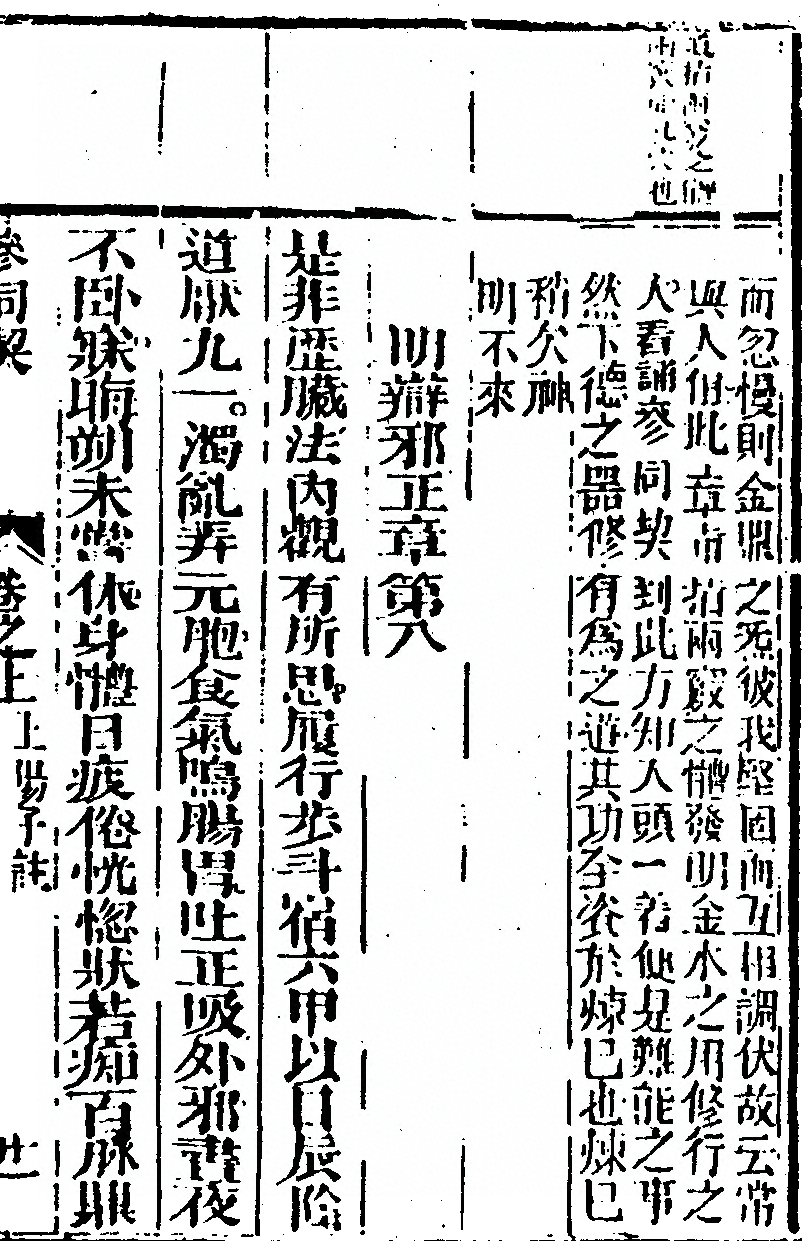 道指兩竅之體
而忽慢則金鼎之炁彼我堅固而互相調伏故云常
與人但此章首指兩竅之體發明金水之用修行之
人看誦參同契到此方知人頭一着便是難能之事
然下德之器修有爲之道其功全資於煉已也煉已
稍久神
明不來
明辯邪正章第八
是非歴臟法內觀有所思履行步斗宿六甲以日辰陰
道厭九一濁亂弄元胞食氣鳴腸胃吐正吸外邪晝夜
不卧寐晦朔未嘗休身體日疲倦恍惚狀若痴百脉鼎
參同契 卷之上 上陽子註 廿一